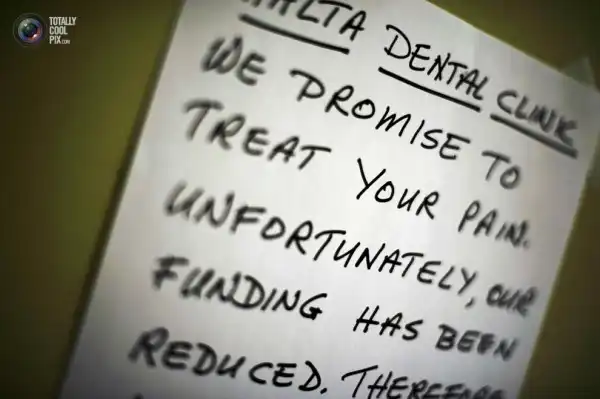 TOTALLY
COOL
PIX.COM
MALTA DENTAL CLINIC
WE PROMISE TO
TREAT YOUR PAIN.
UNFORTUNATELY, OUR
FUNDING HAS BEEN
REDUCED. THEREFORE